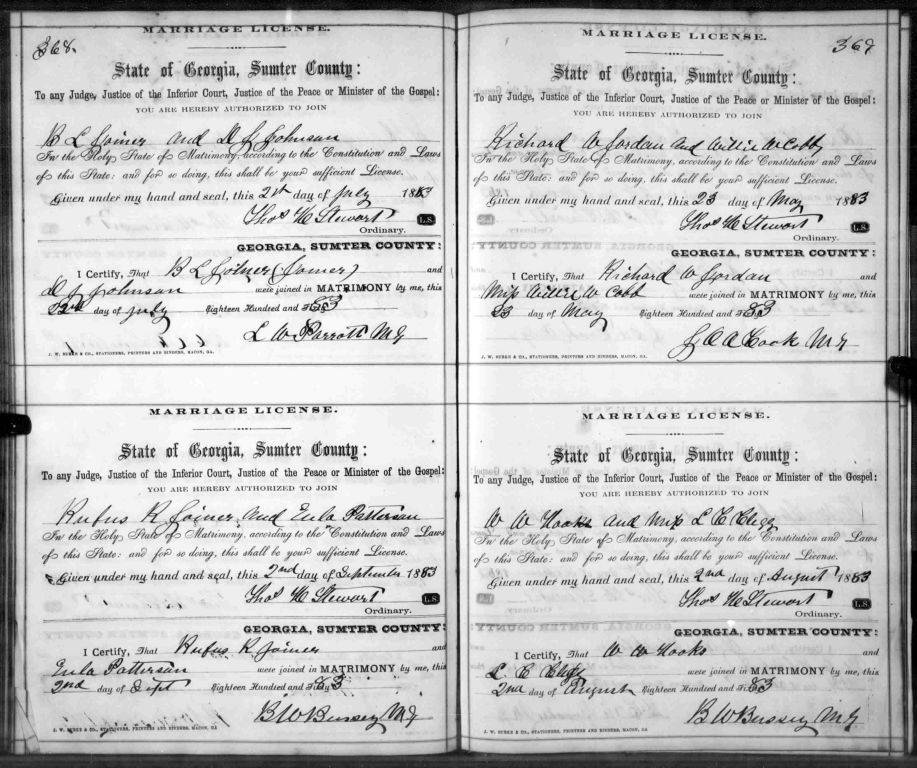 368.
MARRIAGE LICENSE.
State of Georgia, Sumter County:
To any Judge, Justice of the Inferior Court, Justice of the Peace or Minister of the Gospel:
YOU ARE HEREBY AUTHORIZED TO JOIN
B L Joiner and D J Johnson
In the Holy State of Matrimony, according to the Constitution and Laws
of this State: and for so doing, this shall be your sufficient License.
Given under my hand and seal, this 21st day of July 1883
Thos H Stewart L.S.
Ordinary.
GEORGIA, SUMTER COUNTY:
I Certify, That B L Joiner (Joiner) and
D J Johnson were joined in MATRIMONY by me, this
22nd day of July Eighteen Hundred and 83
L W Parrott M G
J. W. BURKE & CO., STATIONERS, PRINTERS AND BINDERS, MACON, GA.
MARRIAGE LICENSE.
State of Georgia, Sumter County:
To any Judge, Justice of the Inferior Court, Justice of the Peace or Minister of the Gospel:
YOU ARE HEREBY AUTHORIZED TO JOIN
Rufus R Joiner and Eula Patterson
In the Holy State of Matrimony, according to the Constitution and Laws
of this State: and for so doing, this shall be your sufficient License.
Given under my hand and seal, this 2nd day of September 1883
Thos H Stewart L.S.
Ordinary.
GEORGIA, SUMTER COUNTY:
I Certify, That Rufus R Joiner and
Eula Patterson were joined in MATRIMONY by me, this
2nd day of Sept Eighteen Hundred and 83
B W Bussey M G
J. W. BURKE & CO., STATIONERS, PRINTERS AND BINDERS, MACON, GA
369
MARRIAGE LICENSE.
State of Georgia, Sumter County:
To any Judge, Justice of the Inferior Court, Justice of the Peace or Minister of the Gospel:
YOU ARE HEREBY AUTHORIZED TO JOIN
Richard W Jordan and Willie W Cobb
In the Holy State of Matrimony, according to the Constitution and Laws
of this State: and for so doing, this shall be your sufficient License.
Given under my hand and seal, this 23 day of May 1883
Thos H Stewart L.S.
Ordinary.
GEORGIA, SUMTER COUNTY:
I Certify, That Richard W Jordan and
Miss Willie W Cobb were joined in MATRIMONY by me, this
23 day of May Eighteen Hundred and 83
J O A Cook M G
J. W. BURKE & CO., STATIONERS, PRINTERS AND BINDERS, MACON, GA.
MARRIAGE LICENSE.
State of Georgia, Sumter County:
To any Judge, Justice of the Inferior Court, Justice of the Peace or Minister of the Gospel:
YOU ARE HEREBY AUTHORIZED TO JOIN
W W Hooks and Miss L C Clegg
In the Holy State of Matrimony, according to the Constitution and Laws
of this State: and for so doing, this shall be your sufficient License.
Given under my hand and seal, this 2nd day of August 1883
Thos H Stewart L.S.
Ordinary.
GEORGIA, SUMTER COUNTY:
I Certify, That W W Hooks and
L C Clegg were joined in MATRIMONY by me, this
2nd day of August Eighteen Hundred and 83
B W Bussey M G
J. W. BURKE & CO., STATIONERS, PRINTERS AND BINDERS, MACON, GA